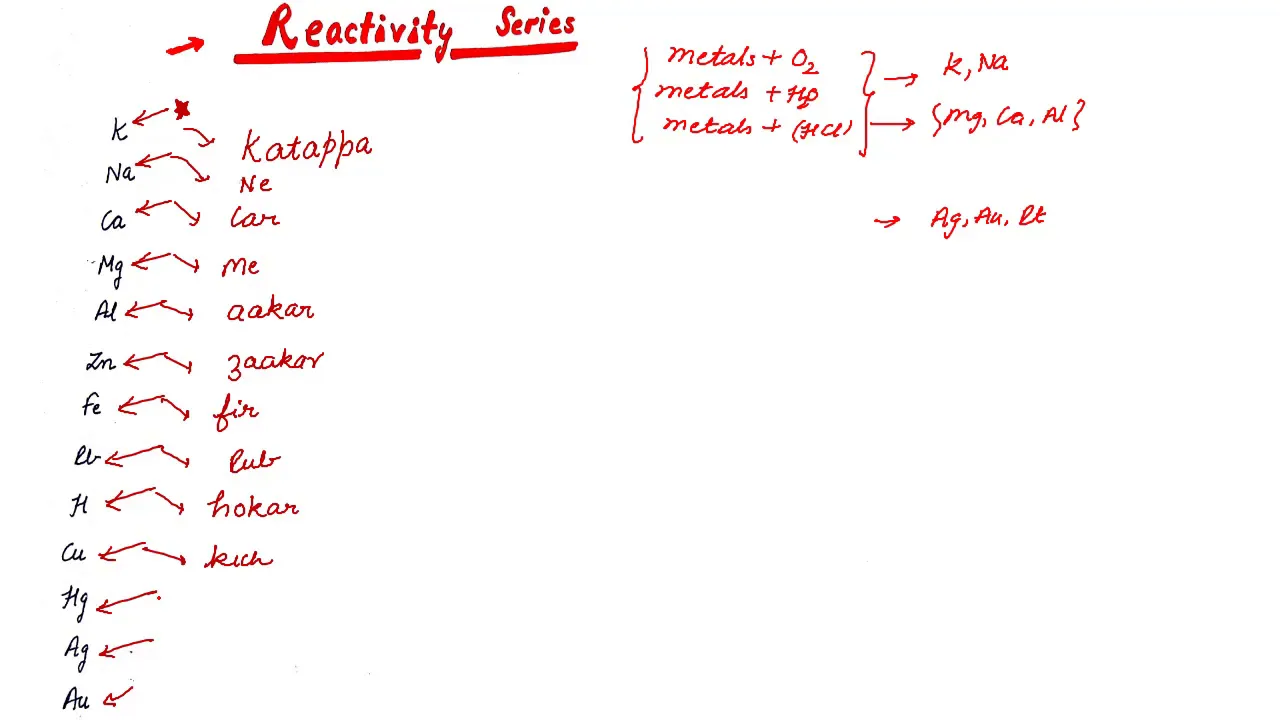 → Reactivity Series
metals + O2
metals + H2O
metals + (HCl)
→ K, Na
→ {Mg, Ca, Al}
→ Ag, Au, Pt
K Katappa
Na Ne
Ca Car
Mg Me
Al aakar
Zn zaakar
Fe fir
Pb Pub
H hokar
Cu kuch
Hg
Ag
Au